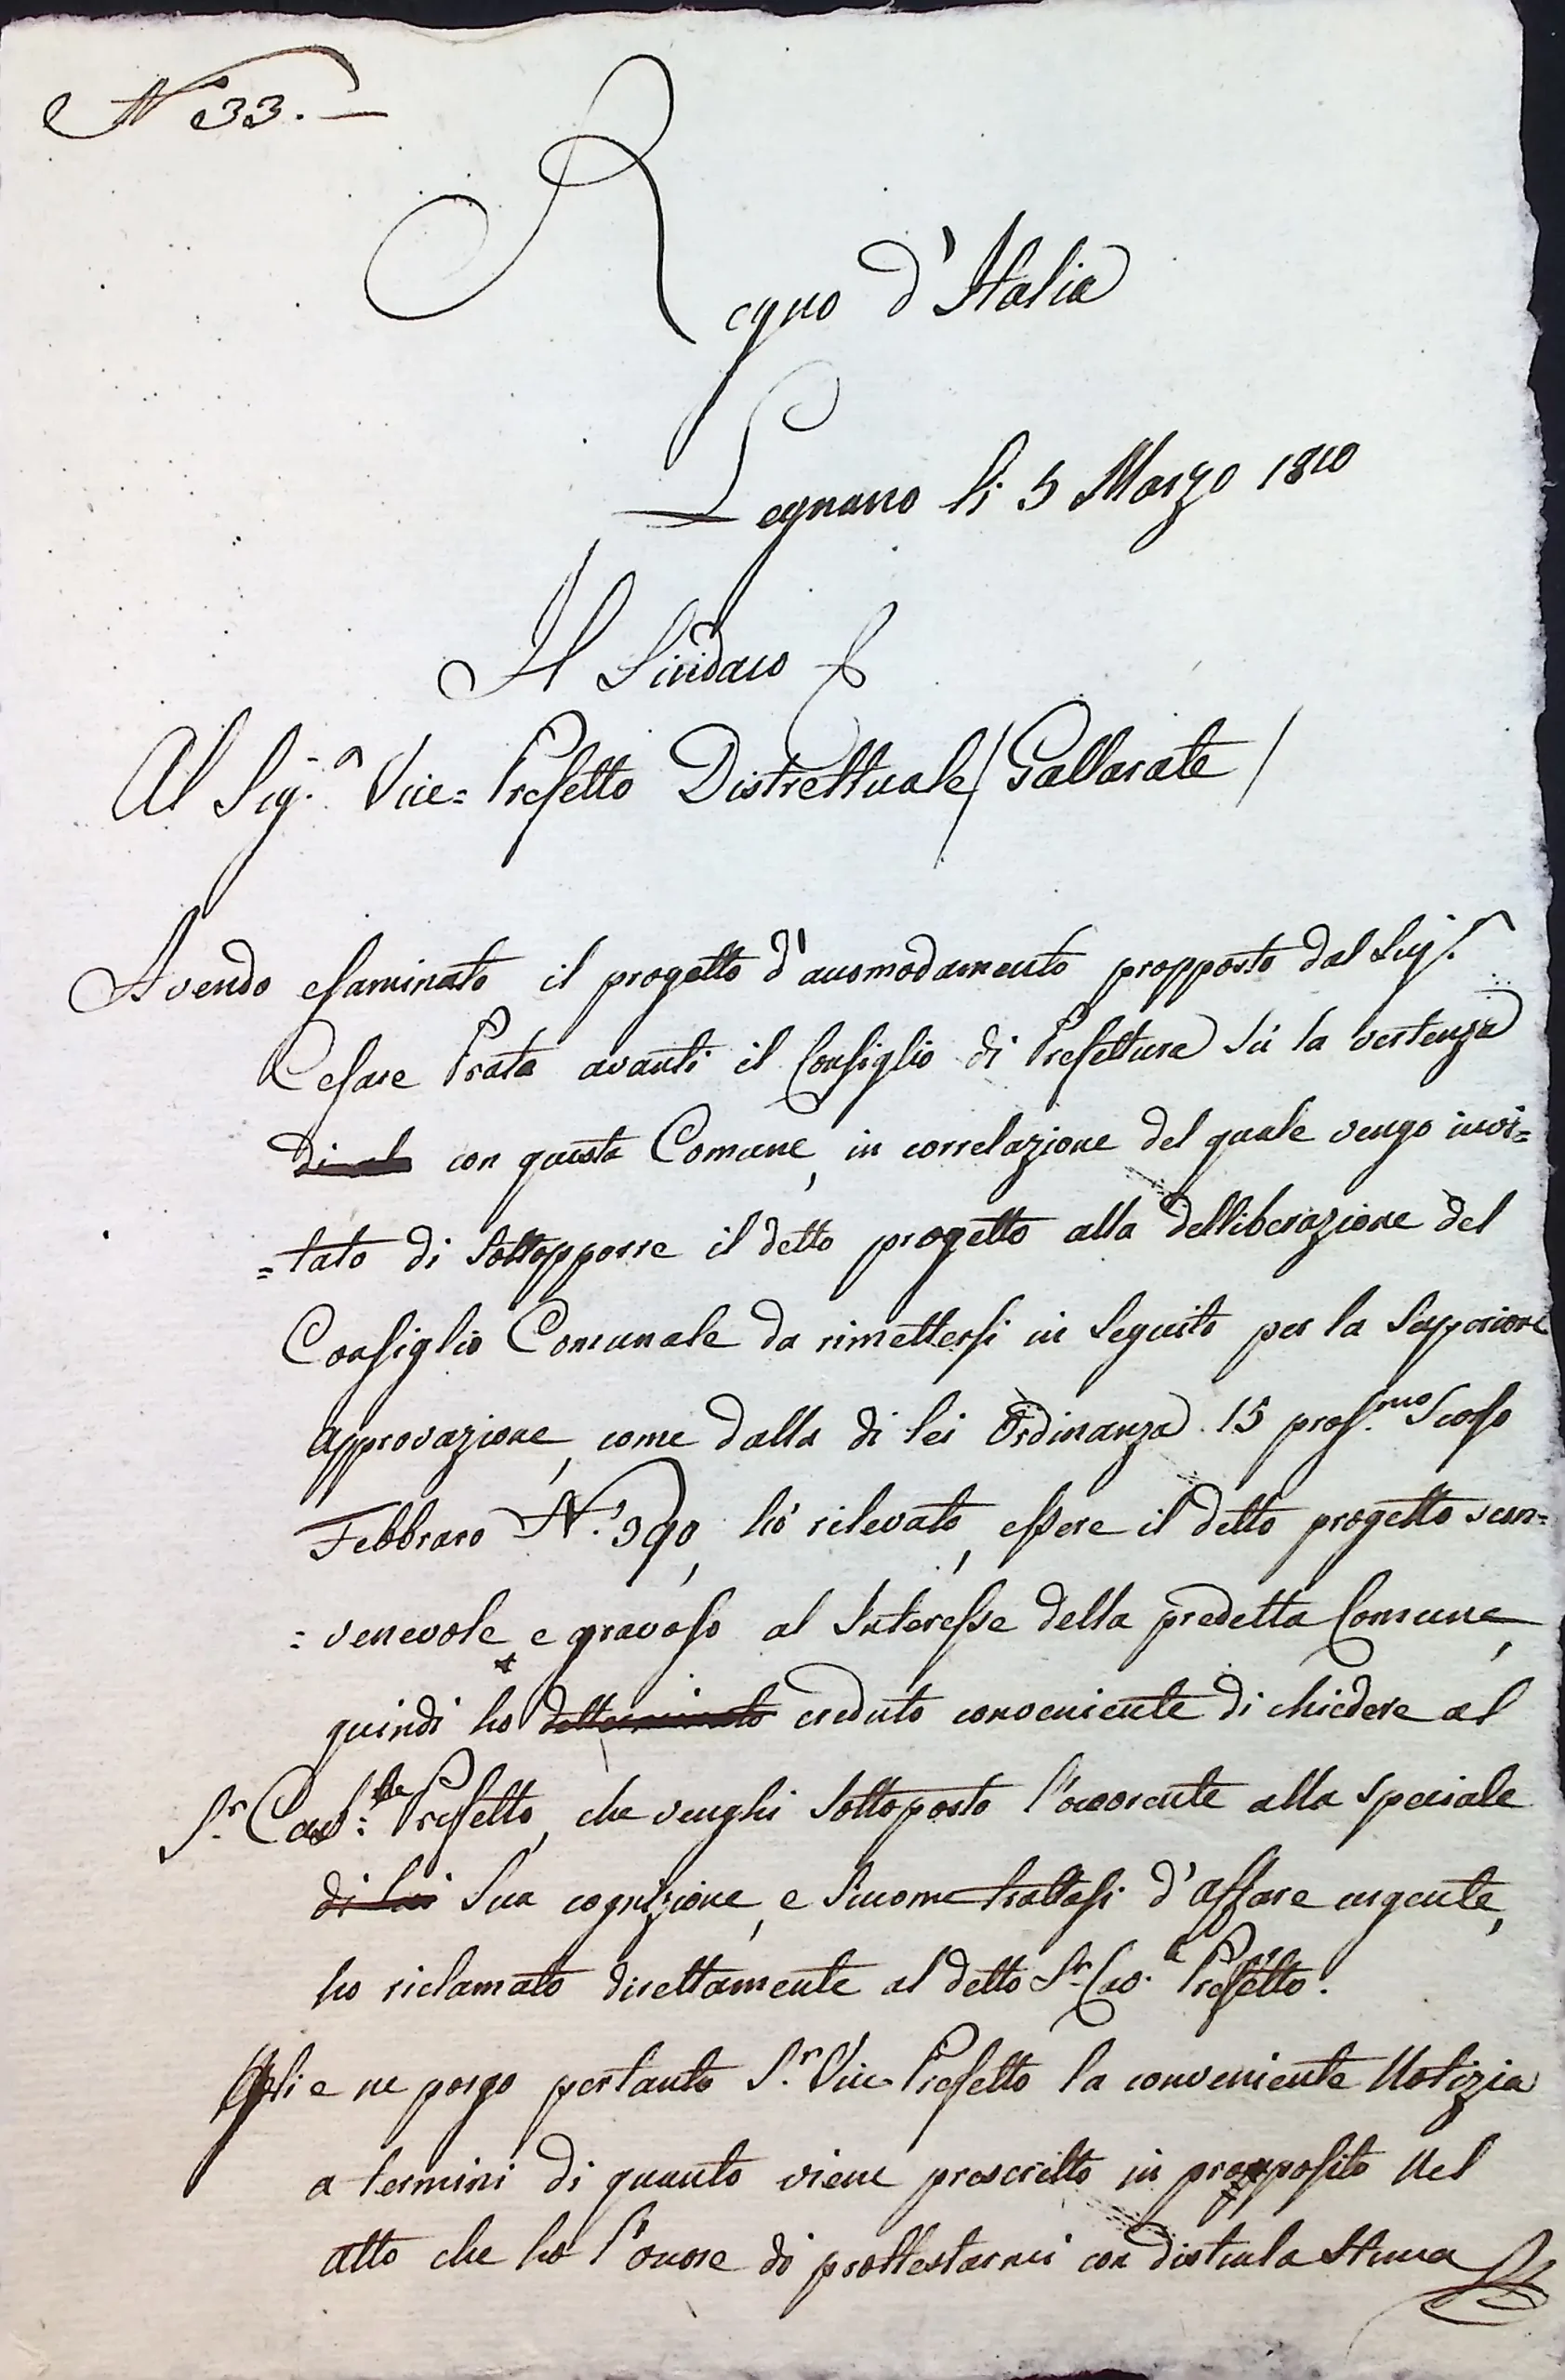 N 33. —
Regno d'Italia
Legnano li 5 Marzo 1810
Il Sindaco
Al Sig.r Vice=Prefetto Distrettuale / Gallarate /
Avendo esaminato il progetto d'accomodamento propposto dal Sig.r
Cesare Prata avanti il Consiglio di Prefettura sù la vertenza
di con questa Comune, in correlazione del quale vengo invi=
=tato di sottopporre il detto progetto alla delliberazione del
Consiglio Comunale da rimettersi in seguito per la Supperiore
approvazione, come dalla di lei Ordinanza 15 pross.mo scorso
Febbraro N.° 390, hò rilevato, essere il detto progetto scon=
=venevole e gravoso al Interesse della predetta Comune,
quindi ho detterminato creduto conveniente di chiedere al
S.r Cav.re Prefetto, che venghi sottoposto l'occorente alla speciale
di Lui sua cognizione, e siccome trattasi d'affare urgente,
ho riclamato direttamente al detto S.r Cav.e Prefetto.
Glie ne porgo pertanto S.r Vice Prefetto la conveniente Notizia
a termini di quanto viene prescritto in propposito Nel
atto che ho l'onore di prottestarmi con distinta stima